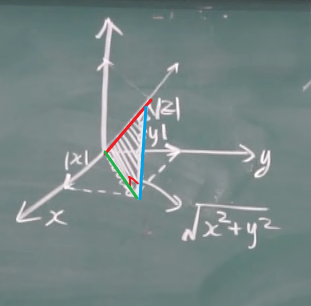 |z|
|y|
|x|
y
x
√x²+y²